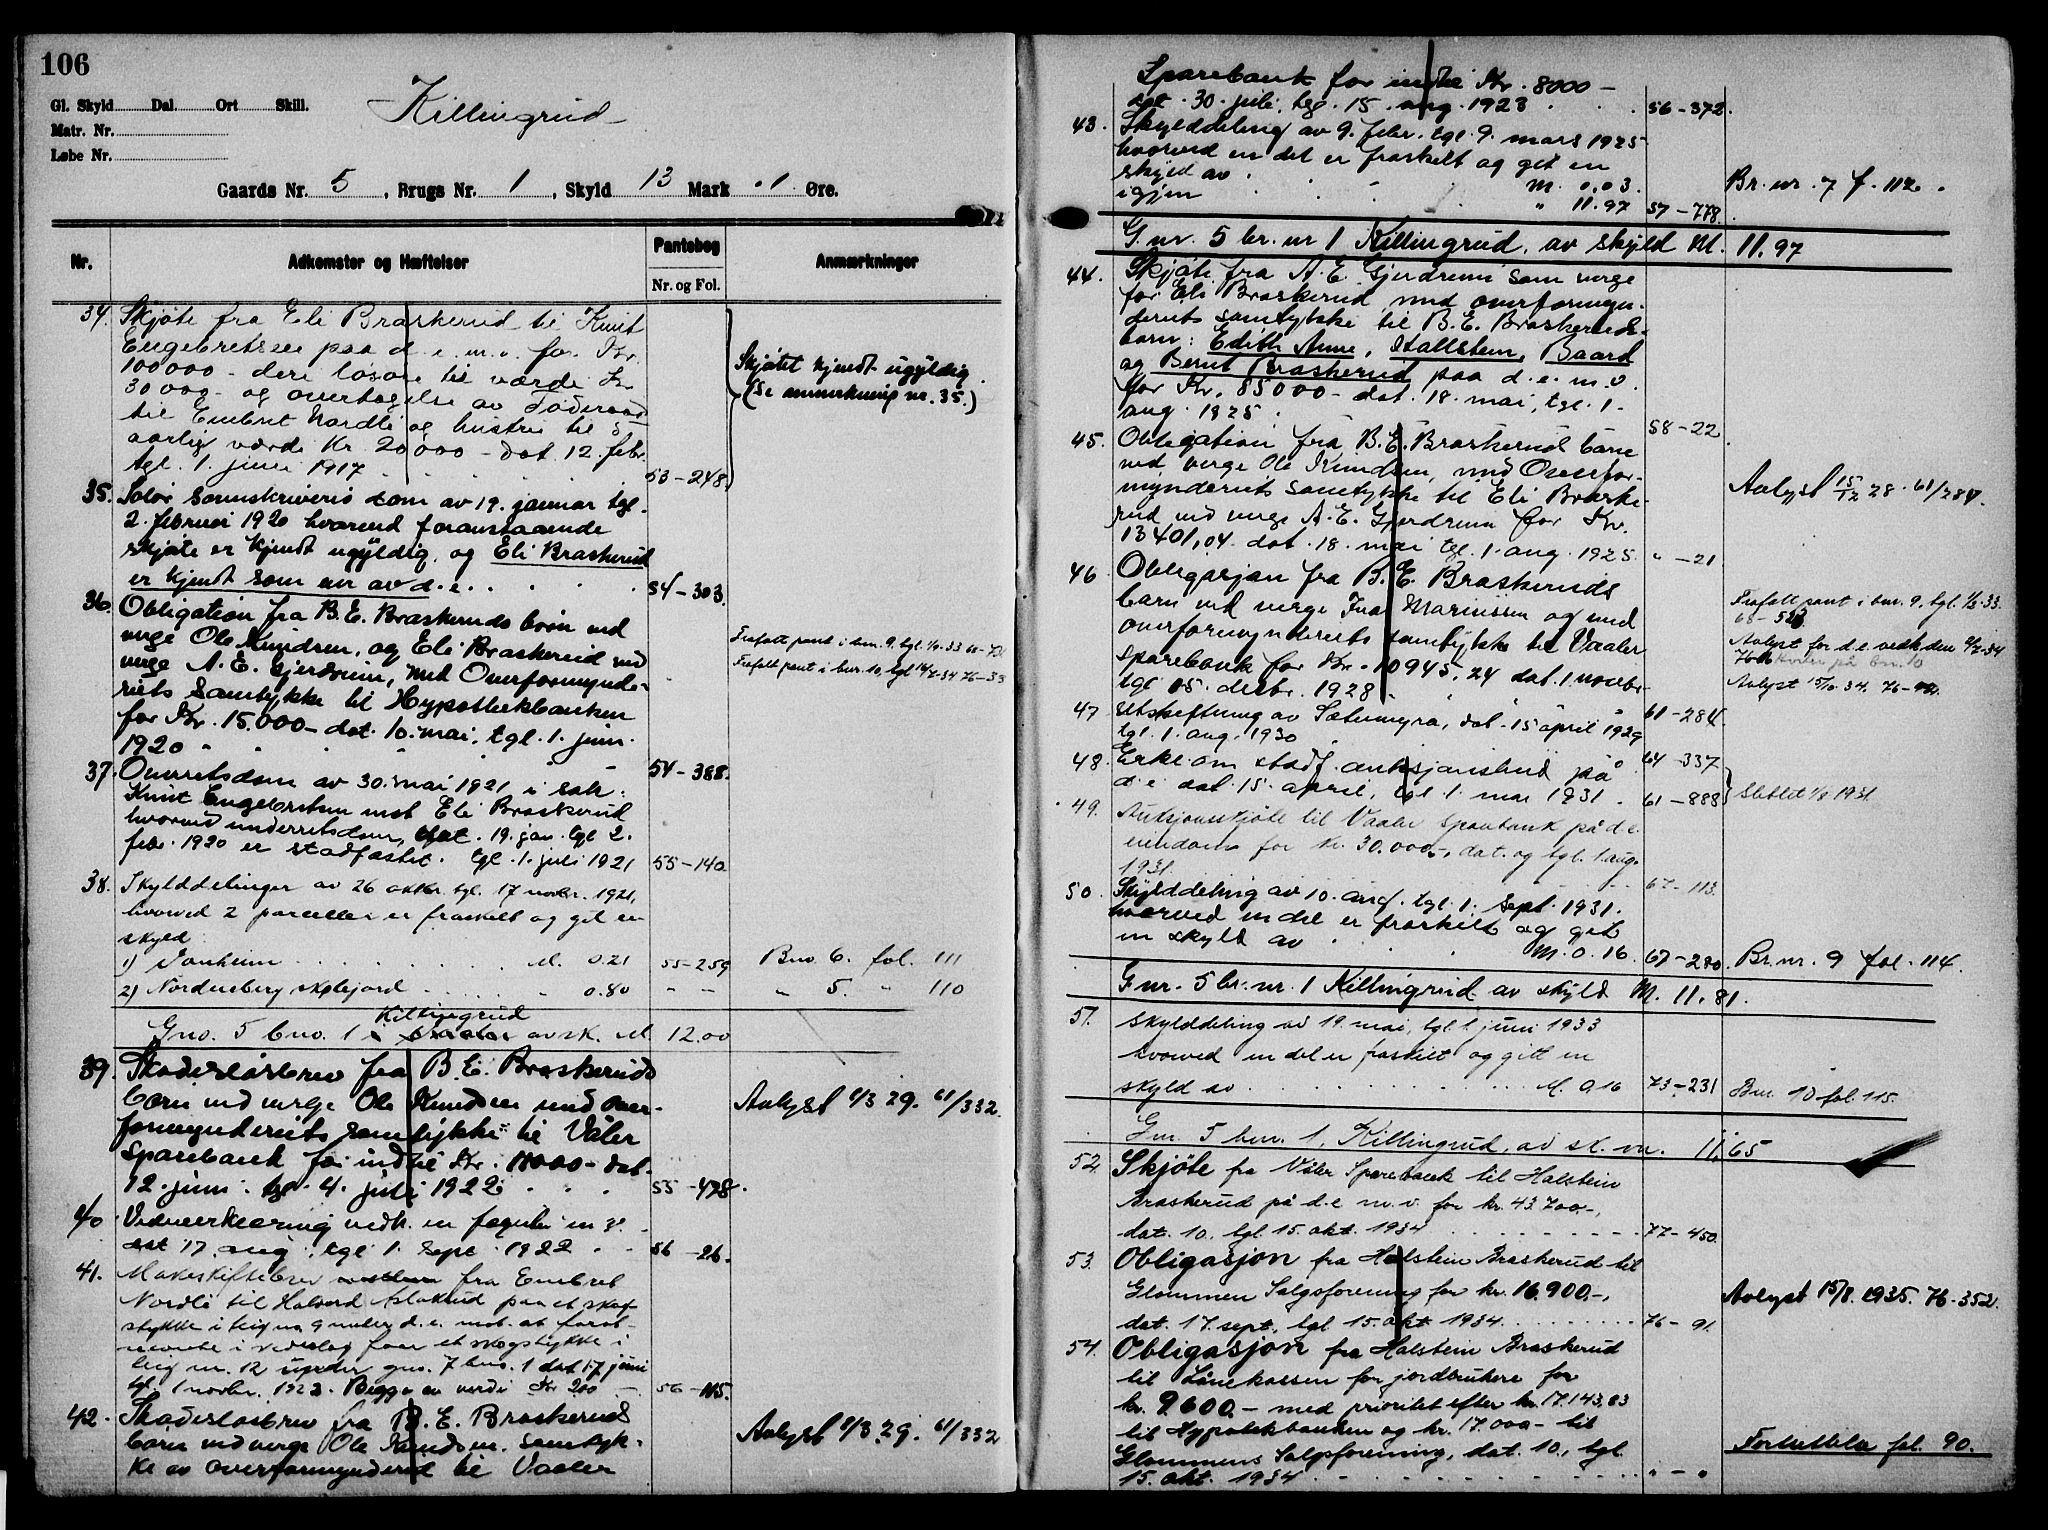 106
Gl. Skyld Dal Ort Skill.
Killingrud
Matr. Nr.
Løbe Nr.
Gaards Nr. 5, Brugs Nr. 1, Skyld 13 Mark .01 Øre.
Nr. Adkomster og Hæftelser Pantebog Nr. og Fol. Anmærkninger
34. Skjøte fra Eli Braskerud til Knut
Engebretsen paa d. e. m. v. for Kr.
100000 - derav løsøre til værdi Kr.
30000 - og overtagelse av Føderaad
til Embret Nordli og hustru til 5
aarlig værdi Kr. 20000 - dat. 12. febr.
tgl. 1. juni 1917 53-248.
Skjøtet kjendt ugyldig.
(Se anmerkning nr. 35.)
35. Solør sorenskriveris dom av 19. januar tgl.
2. februar 1920 hvorved foranstaaende
skjøte er kjendt ugyldig, og Eli Braskerud
er kjendt som eier av d. e. 54-303.
36. Obligation fra B. E. Braskeruds børn ved
verge Ole Knudsen, og Eli Braskerud ved
verge A. E. Gjerdrum, med Overformynde-
riets samtykke til Hypothekbanken
for Kr. 15.000 - dat. 10. mai, tgl. 1. juni
1920 54-388.
Frafalt pant i bnr. 9, tgl. 1/6-33
Frafalt pant i bnr. 10, tgl 76-33
37. Overretsdom av 30. mai 1921 i sak:
Knut Engebretsen mot Eli Braskerud
hvorved underretsdom, dat. 19. jan. tgl 2.
febr. 1920 er stadfæstet. tgl. 1. juli 1921 55-140
38. Skylddelinger av 26 oktbr. tgl. 17 novbr. 1921,
hvorved 2 parceller er fraskilt og git en
skyld
1) Vonheim M. 0.21 55-259 Bno. 6. fol. 111
2) Nordensberg skølejord " 0.80 " " " 5. " 110
Gno. 5 bno. 1 Killingrud av sk. M. 12.00
39. Skadesløsbrev fra B. E. Braskeruds
børn ved verge Ole Knudsen med over-
formynderiets samtykke til Våler
Sparebank for indtil Kr. 18000 - dat.
12. juni. tgl. 4. juli 1922 55-478.
Avlyst 1/3 29. 61/332.
40. Vidneerklæring vedk. en m. v.
dat 17. aug., tgl 1. Sept. 1922 56-26.
41. Makeskiftebrev fra Embret
Nordli til Halvord Aslakrud paa et skog-
stykke i teig no. 9 under d. e. mot at først-
nevnte i vederlag faar et skogstykke i
teig nr. 12 under gno. 7 bno. 1 dat 17 juni
tgl. 1 novbr. 1923. Begge en verdi Kr 200 - 56-115.
42. Skadesløsbrev fra B. E. Braskeruds
børn ved verge Ole Knudsen. samtyk-
ke av overformynderiet til Vaaler
Avlyst 1/3 29. 61/332
Sparebank for indtil Kr. 8000 -
dat. 30. juli, tgl. 15. aug. 1923 56-372.
43. Skylddeling av 9. febr. tgl. 9. mars 1925
hvorved en del er fraskilt og git en
skyld av M. 0.03. Br. nr. 7 f. 112.
igjen " 11.97 57-778.
G. nr. 5 br. nr 1 Killingrud, av skyld M. 11.97
44. Skjøte fra A. E. Gjerdrum som verge
for Eli Braskerud, med overformyn-
deriets samtykke til B. E. Braskeruds
barn: Edith Anne, Hallstein, Baard
og Bernt Braskerud paa d. e. m. v.
for Kr. 85000 - dat. 18. mai, tgl. 1.
aug. 1925 58-22.
45. Obligation fra B. E. Braskerud barn
ved verge Ole Knudsen, med Overfor-
mynderiets samtykke til Eli Braske-
rud ved verge A. E. Gjerdrum for Kr.
13401,04 dat. 18. mai tgl. 1. aug. 1925 " -21
Avlyst 15/12 28. 61/284.
46. Obligasjon fra B. E. Braskeruds
barn ved verge Ivar Marinussen og med
overformynderiets samtykke til Vaaler
sparebank for Kr. 10945,24 dat. 1. novbr.
tgl. 15. desbr. 1928 61-284.
Frafalt pant i bnr. 9, tgl. 1/6-33.
68-523
Avlyst for d. e. vedk. den 4/7-34
76 på bnr. 10
Avlyst 15/10 34. 76-90.
47. Utskiftning av Sætermyra, dat. 15 april 1929
tgl. 1. aug. 1930 64-337
48. Erkl. om stadf. auksjonsbud på
d. e. dat. 15. april, tgl. 1. mai 1931. 61-888 Slettet 1/8 1931.
49. Auksjonsskjøte til Vaaler Sparebank på d. e.
eiendom for kr. 30.000,-, dat. og tgl. 1. aug.
1931. 67-113.
50. Skylddeling av 10. aug. tgl. 1. sept. 1931.
hvorved en del er fraskilt og git
en skyld av M. 0.16. 67-280. Br. nr. 9 fol. 114.
G. nr. 5 br. nr. 1 Killingrud av skyld M. 11.81.
51. Skylddeling av 19. mai, tgl. 1 juni 1933
hvorved en del er fraskilt og gitt en
skyld av M. 0.16 73-231 Bnr. 10 fol. 115.
Gnr. 5 bnr. 1, Killingrud, av sk. m. 11,65
52. Skjøte fra Våler Sparebank til Halstein
Braskerud på d. e. m. v. for kr. 43.700.-,
dat. 10. tgl. 15. okt. 1934 77-450.
53. Obligasjon fra Halstein Braskerud til
Glommen Salgsforening for kr. 16.900.-,
dat. 17. sept, tgl 15. okt 1934 76-91.
Avlyst 15/8. 1935. 76-352.
54. Obligasjon fra Halstein Braskerud
til Lånekassen for jordbrukere for
kr. 9600.- med prioritet efter kr. 17.143,83
til Hypotekbanken og kr. 17.000- til
Glommens Salgsforening, dat. 10., tgl.
15. okt. 1934 " - "
Fortsettelse fol. 90.